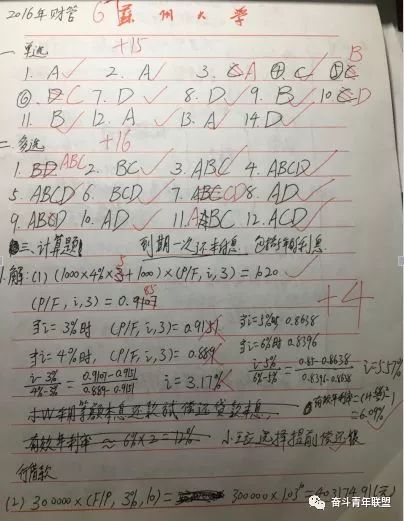 2016年财管 67 苏州大学
一 单选 +15
1. A✓ 2. A✓ 3. C A ④ C ⑤ C B
⑥. D C 7. D✓ 8. D✓ 9. B✓ 10. C D
11. B✓ 12. A✓ 13. A✓ 14. D✓
二. 多选 +16
1. BD ABC 2. BC✓ 3. ABC✓ 4. ABCD✓
5. ABCD✓ 6. BCD✓ 7. ABCD 8. AD✓
9. ABCD 10. AD✓ 11. ABC 12. ACD✓
三、计算题 到期一次还本付息
1.解: (1) (1000×4%×5+1000)×(P/F, i, 3) = 620 ✓
(P/F, i, 3) = 0.9107 +4
当i=3%时 (P/F, i, 3)=0.9151 当i=5%时 0.8638
当i=4%时, (P/F, i, 3)=0.889 当i=6%时 0.8396
(i-3%)/(4%-3%) = (0.9107-0.9151)/(0.889-0.9151) i=3.17% (i-5%)/(6%-5%) = (0.85-0.8638)/(0.8396-0.8638) i=5.57%
小W 等额本息还款 偿还贷款本息, 有效年利率=
=6.09%
有效年利率≈6%×2=12% 小王应选择提前偿还银
行借款
(2) 300000×(F/P, 3%, 10) = 300000× =403174.91(元)
奋斗青年联盟